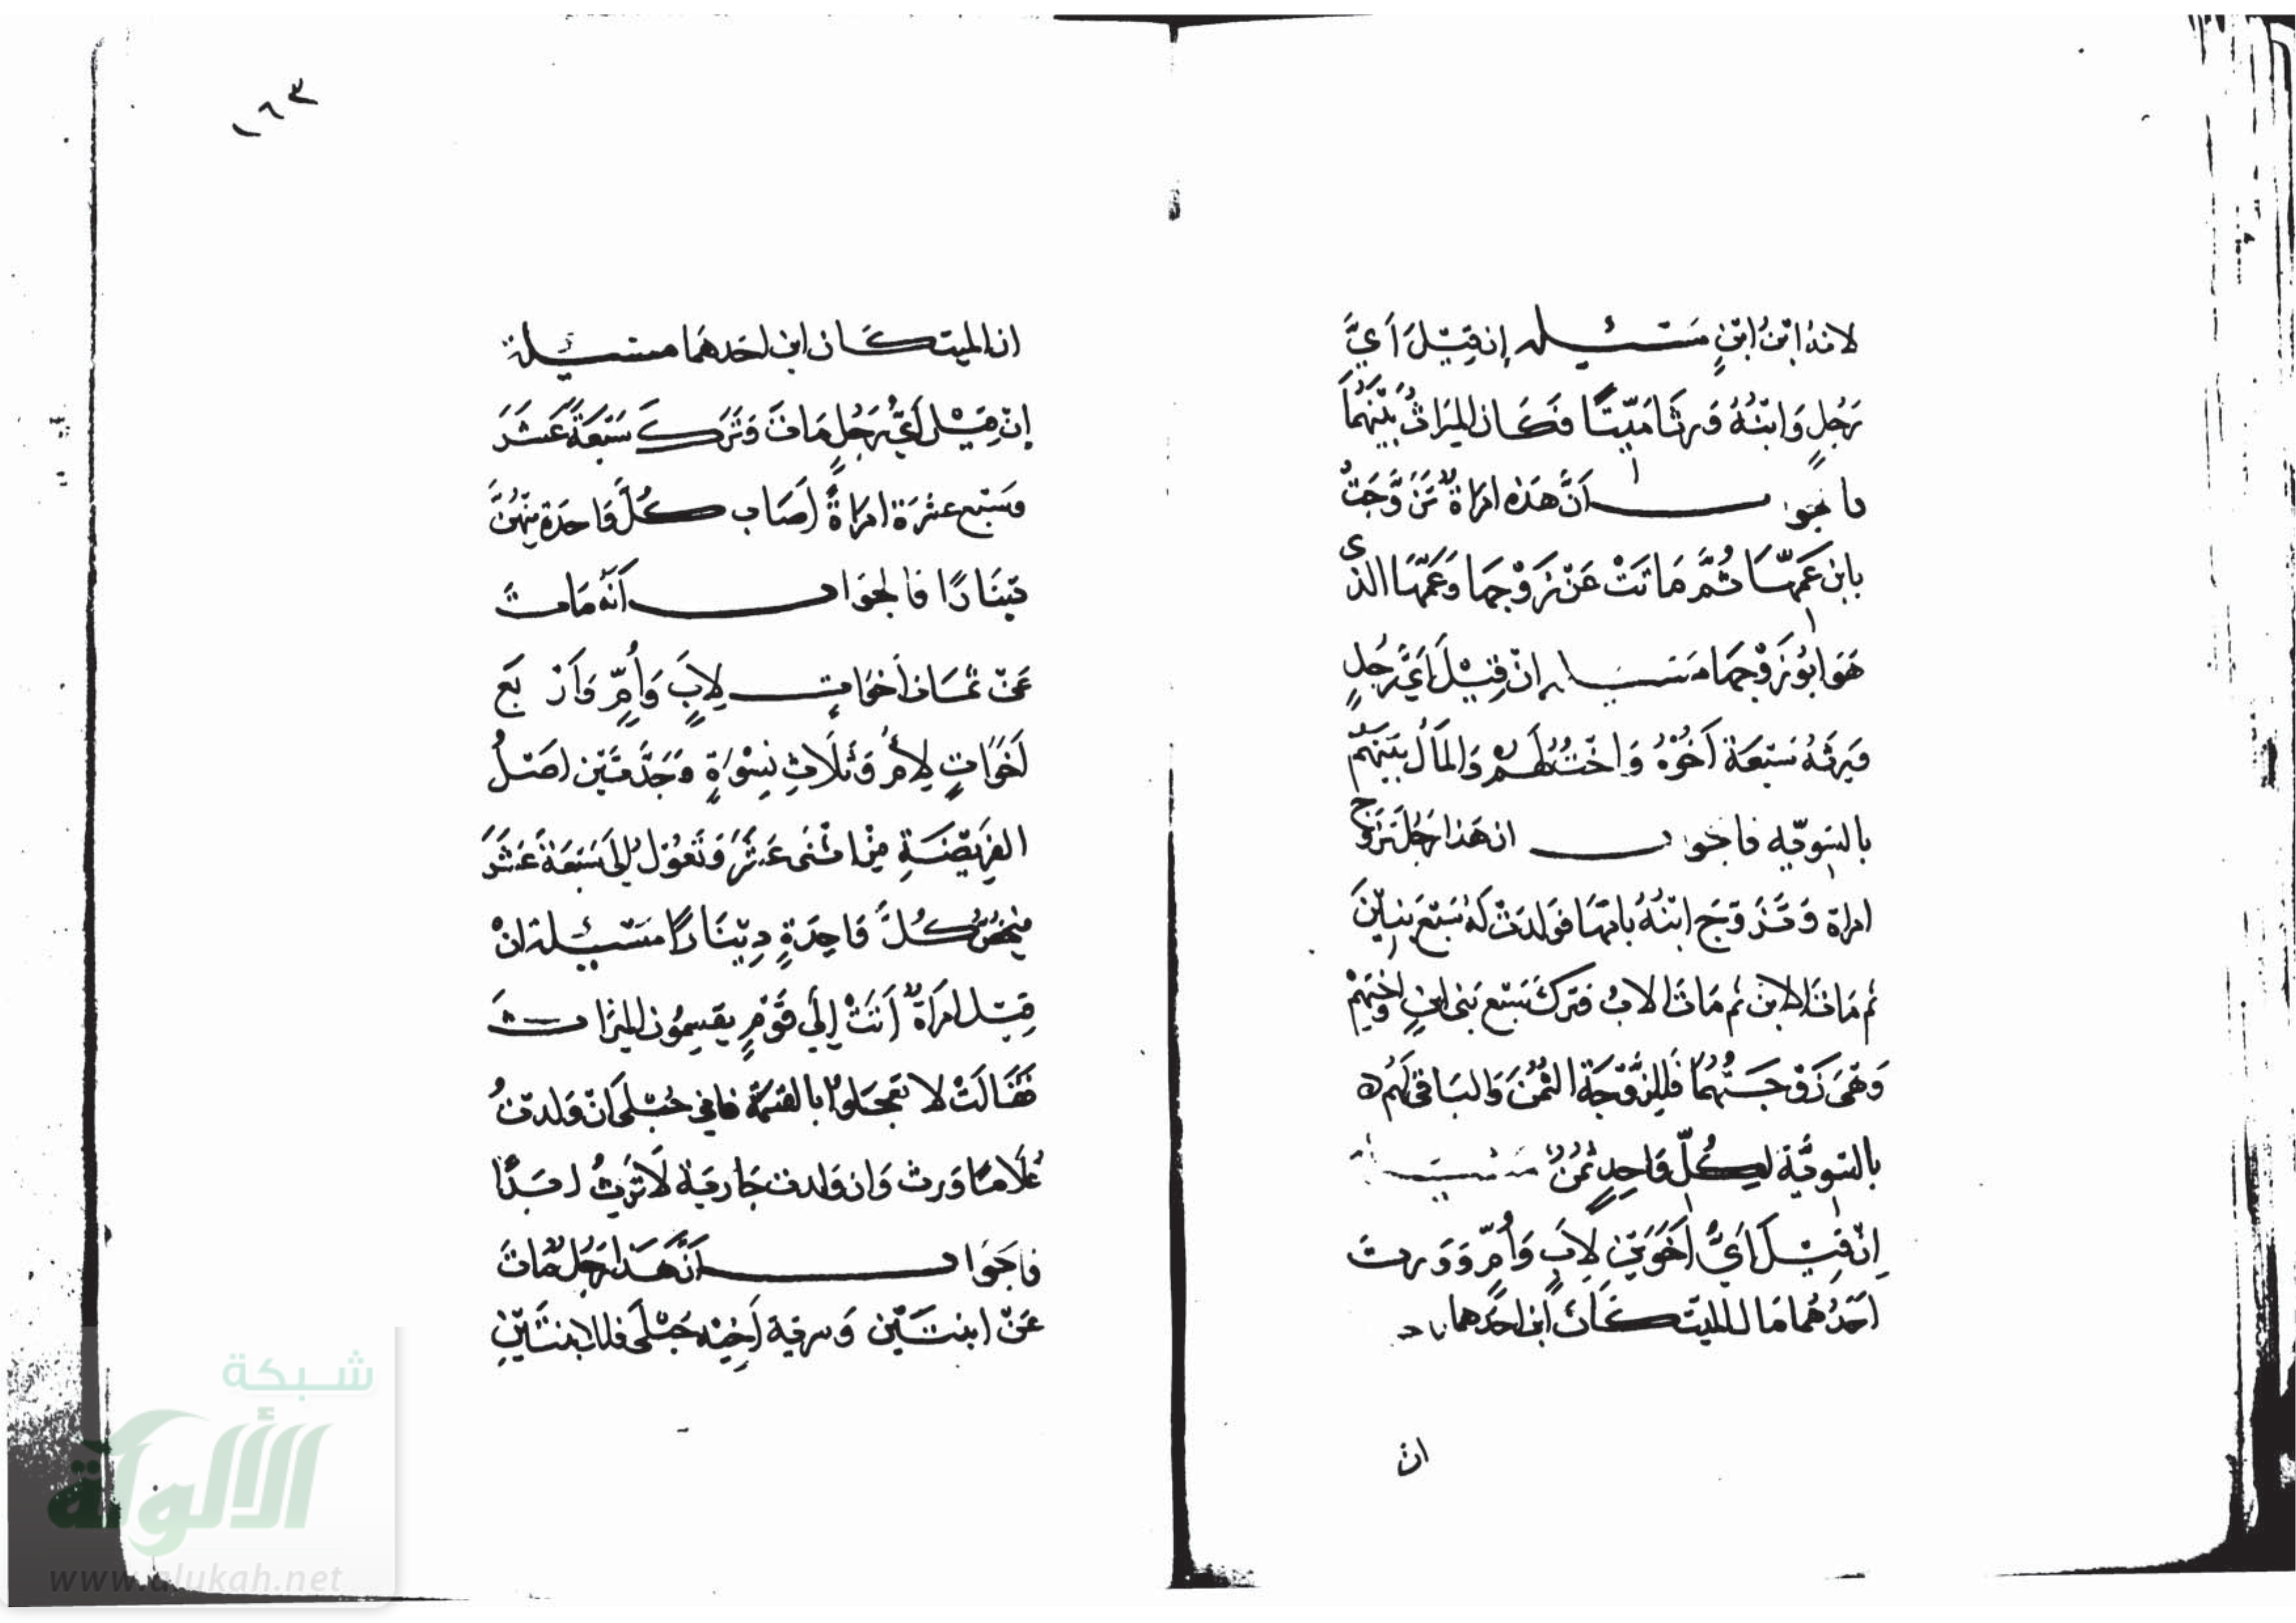 لانه ابن ابن مسئله إن قيل أي
رجل وابنه ورثا ميتا فكان الميراث بينهما
فالجواب أن هذه امراة تزوجت
بابن عمها ثم ماتت عن زوجها وعمها الذي
هو ابو زوجها مسئله إن قيل أي رجل
ويرثه سبعة أخوه واخت لهم والمال بينهم
بالسويه فاجواب ان هذا رجل تزوج
امراة وتزوج ابنه بامها فولدت له سبع بنين
ثم مات الابن ثم مات الاب فترك سبع بنى ابن واختهم
وهي زوجتهما فللزوجة الثمن والباقي لهم
بالسوية لكل واحد ثمن مسئلة
إن قيل أي أخوين لاب وأم وورث
احدهما مال الميت كان ابن احدهما
ان
١٦٣
ان الميت كان ابن احدهما مسئلة
إن قيل أي رجل مات وترك سبعة عشر
وسبع عشرة امراة أصاب كل واحدة منهن
دينارا فالجواب أنه مات
عن ثمان أخوات لاب وأم وأربع
أخوات لأم وثلاث نسوة وجدتين اصل
الفريضة من اثنى عشر وتعول إلى سبعة عشر
فيخص كل واحدة دينارا مسئلة ان
قيل امرأة أتت إلي قوم يقسمون الميراث
فقالت لا تعجلوا بالقسمة فاني حبلى ان ولدت
غلاما ورث وان ولدت جارية لا ترث ابدا
فاجواب أن هذا رجل مات
عن ابنتين وسرية أخيه حبلى فللابنتين
شبكة
الألوكة
www.alukah.net